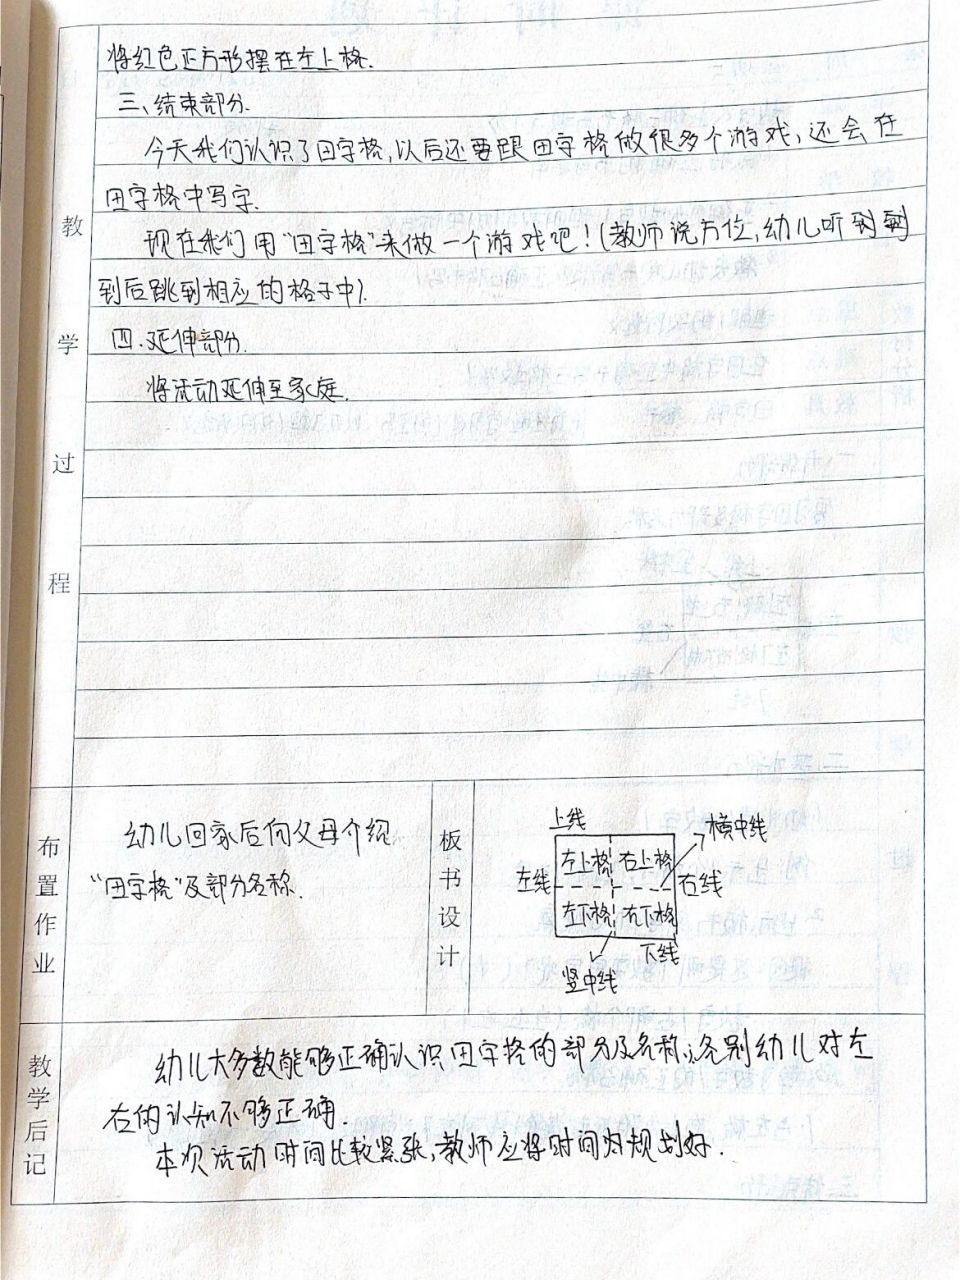 将红色正方形摆在左上格.
三、结束部分.
今天我们认识了田字格,以后还要跟田字格做很多个游戏,还会在
田字格中写字.
教
现在我们用“田字格”来做一个游戏吧!(教师说方位,幼儿听到
到后跳到相应的格子中).
学
四.延伸部分.
将活动延伸至家庭.
过
程
布置作业
幼儿回家后向父母介绍
“田字格”及部分名称.
板书设计
上线
横中线
左上格 右上格
左线
右线
左下格 右下格
下线
竖中线
教学后记
幼儿大多数能够正确认识田字格的部分及名称,各别幼儿对左
右的认知不够正确.
本次活动时间比较紧张,教师应将时间规划好.